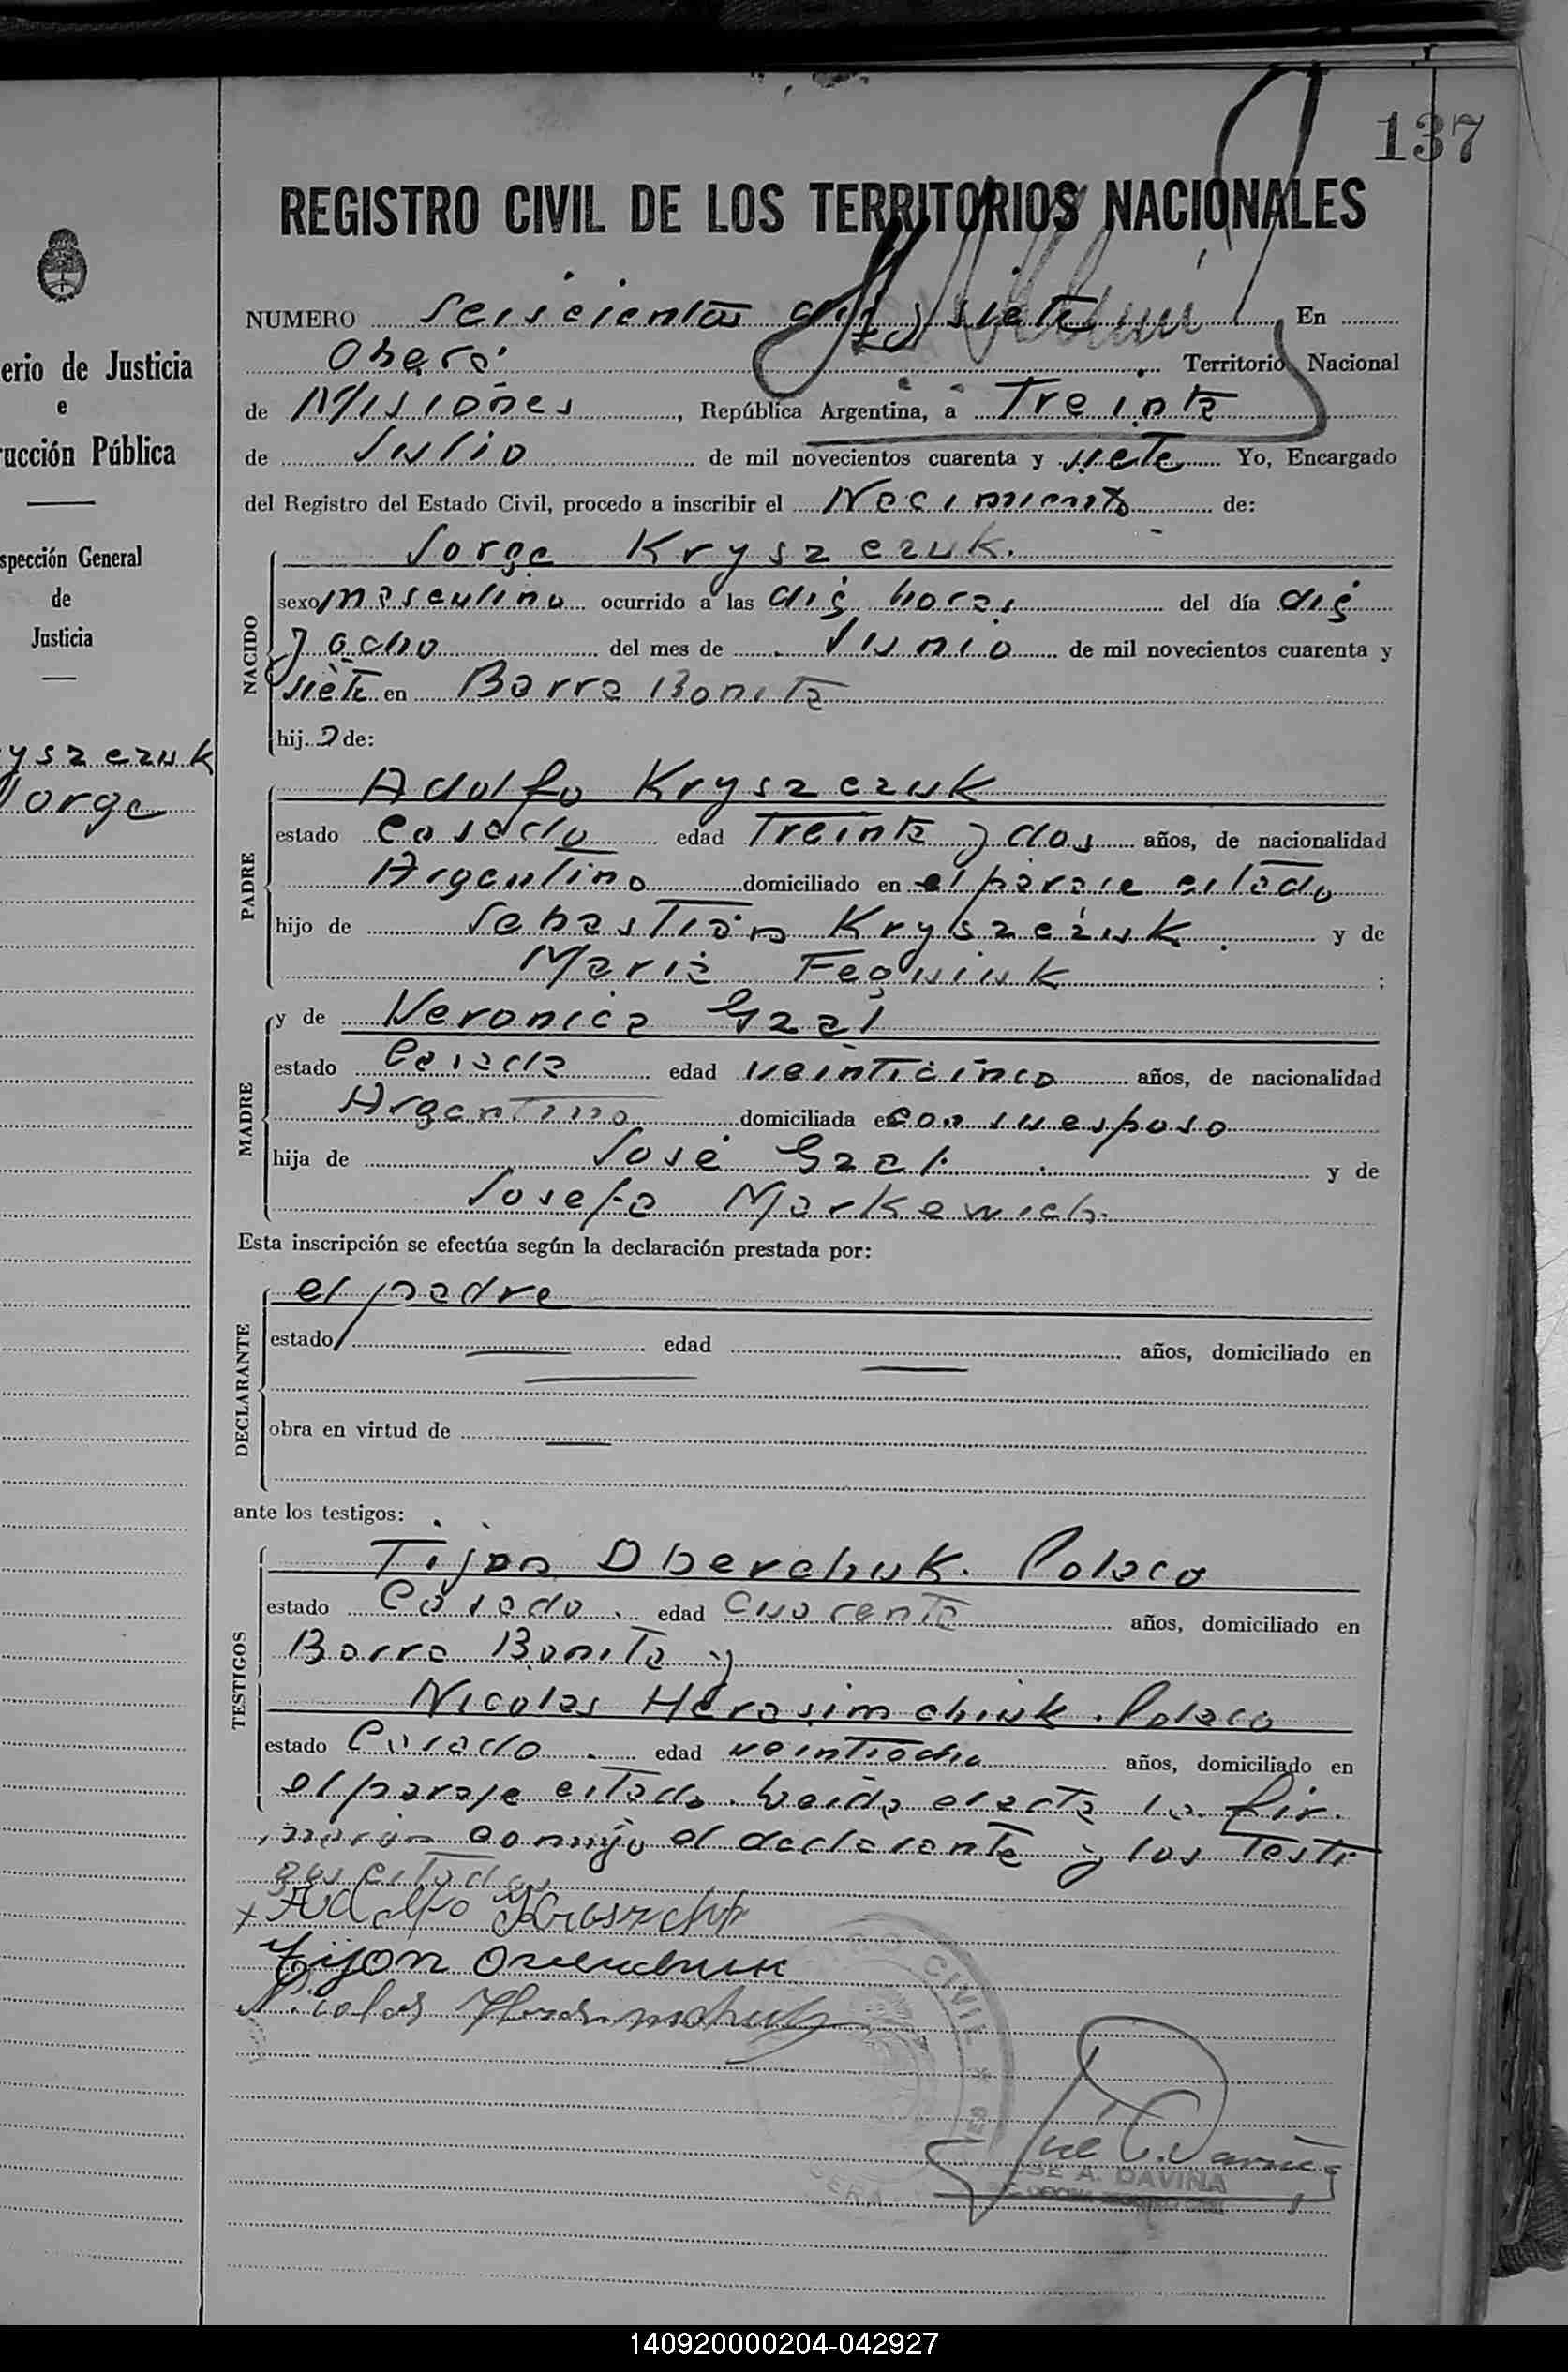 137
REGISTRO CIVIL DE LOS TERRITORIOS NACIONALES
NUMERO seiscientos diez y siete En
Oberá Territorio Nacional
de Misiones, República Argentina, a Treinta
de Julio de mil novecientos cuarenta y siete Yo, Encargado
del Registro del Estado Civil, procedo a inscribir el Nacimiento de:
NACIDO
Jorge Kryszczuk.
sexo masculino ocurrido a las diez horas del día diez
y ocho del mes de Junio de mil novecientos cuarenta y
siete en Barra Bonita
hijo de:
PADRE
Adolfo Kryszczuk
estado Casado edad Treinta y dos años, de nacionalidad
Argentino domiciliado en el paraje citado
hijo de Sebastián Kryszczuk y de
María ;
MADRE
y de Veronica Gzal
estado Casada edad veinticinco años, de nacionalidad
Argentina domiciliada en con su esposo
hija de José Gzal. y de
Josefa Markewich.
Esta inscripción se efectúa según la declaración prestada por:
DECLARANTE
el padre
estado edad años, domiciliado en
obra en virtud de
ante los testigos:
TESTIGOS
Tijon Oberchuk. Polaco
estado Casado. edad Cuarenta años, domiciliado en
Barra Bonita y
Nicolas Herasimchiuk. Polaco
estado Casado. edad veintiocho años, domiciliado en
el paraje citado. Leida el acta la fir.
maron conmigo el declarante y los testi
gos citados
x Adolfo
Tijon
Nicolas
CIVIL
JOSE A. DAVIÑA
erio de Justicia
e
rucción Pública
spección General
de
Justicia
yszczuk
Jorge
140920000204-042927